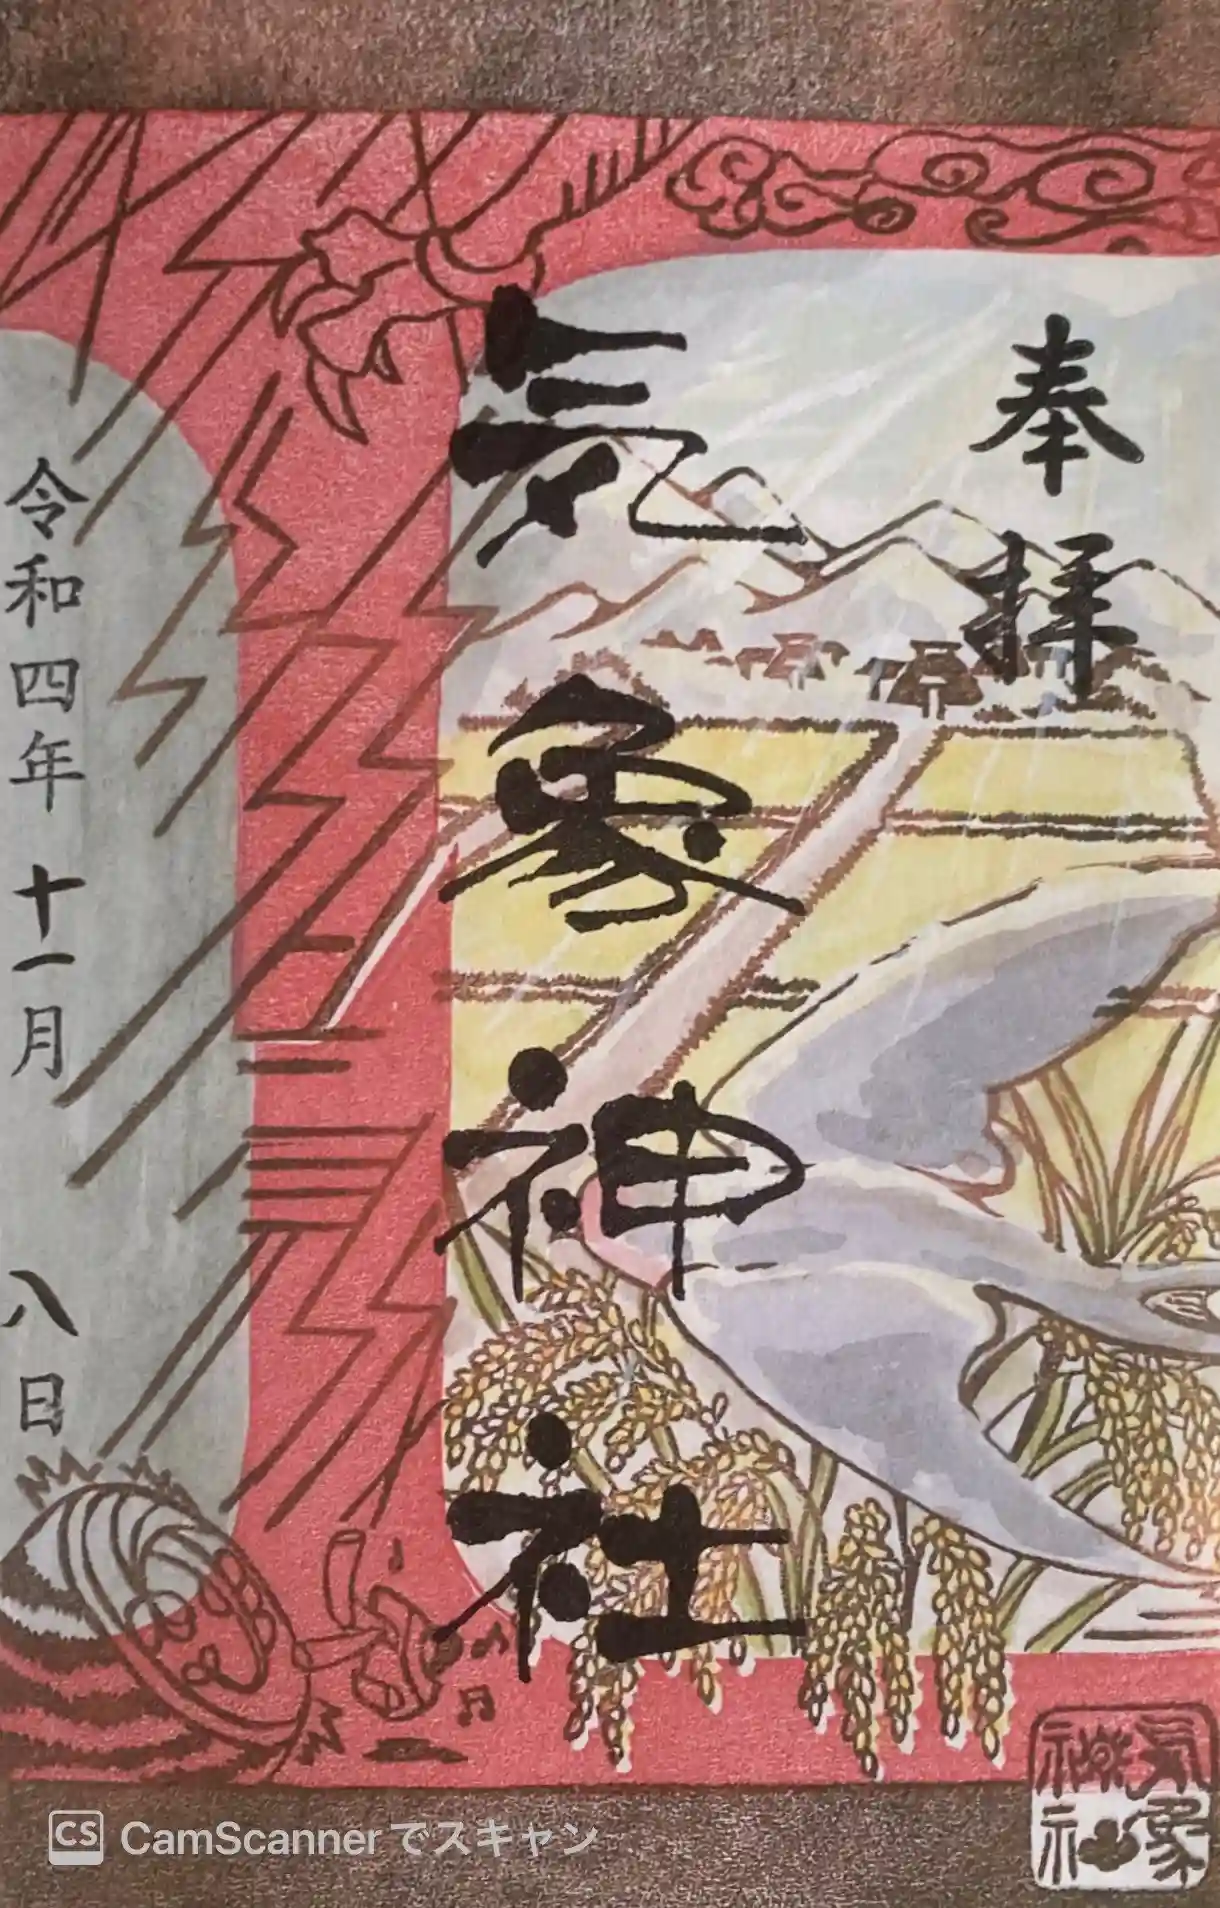 奉拝
気象神社
令和四年十一月八日
気象
神社
CS CamScannerでスキャン